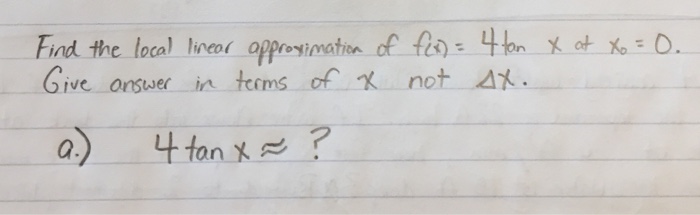 Find the local linear approximation of f(x) = 4 tan x at x₀ = 0.
Give answer in terms of x not Δx.
a.) 4 tan x ≈ ?